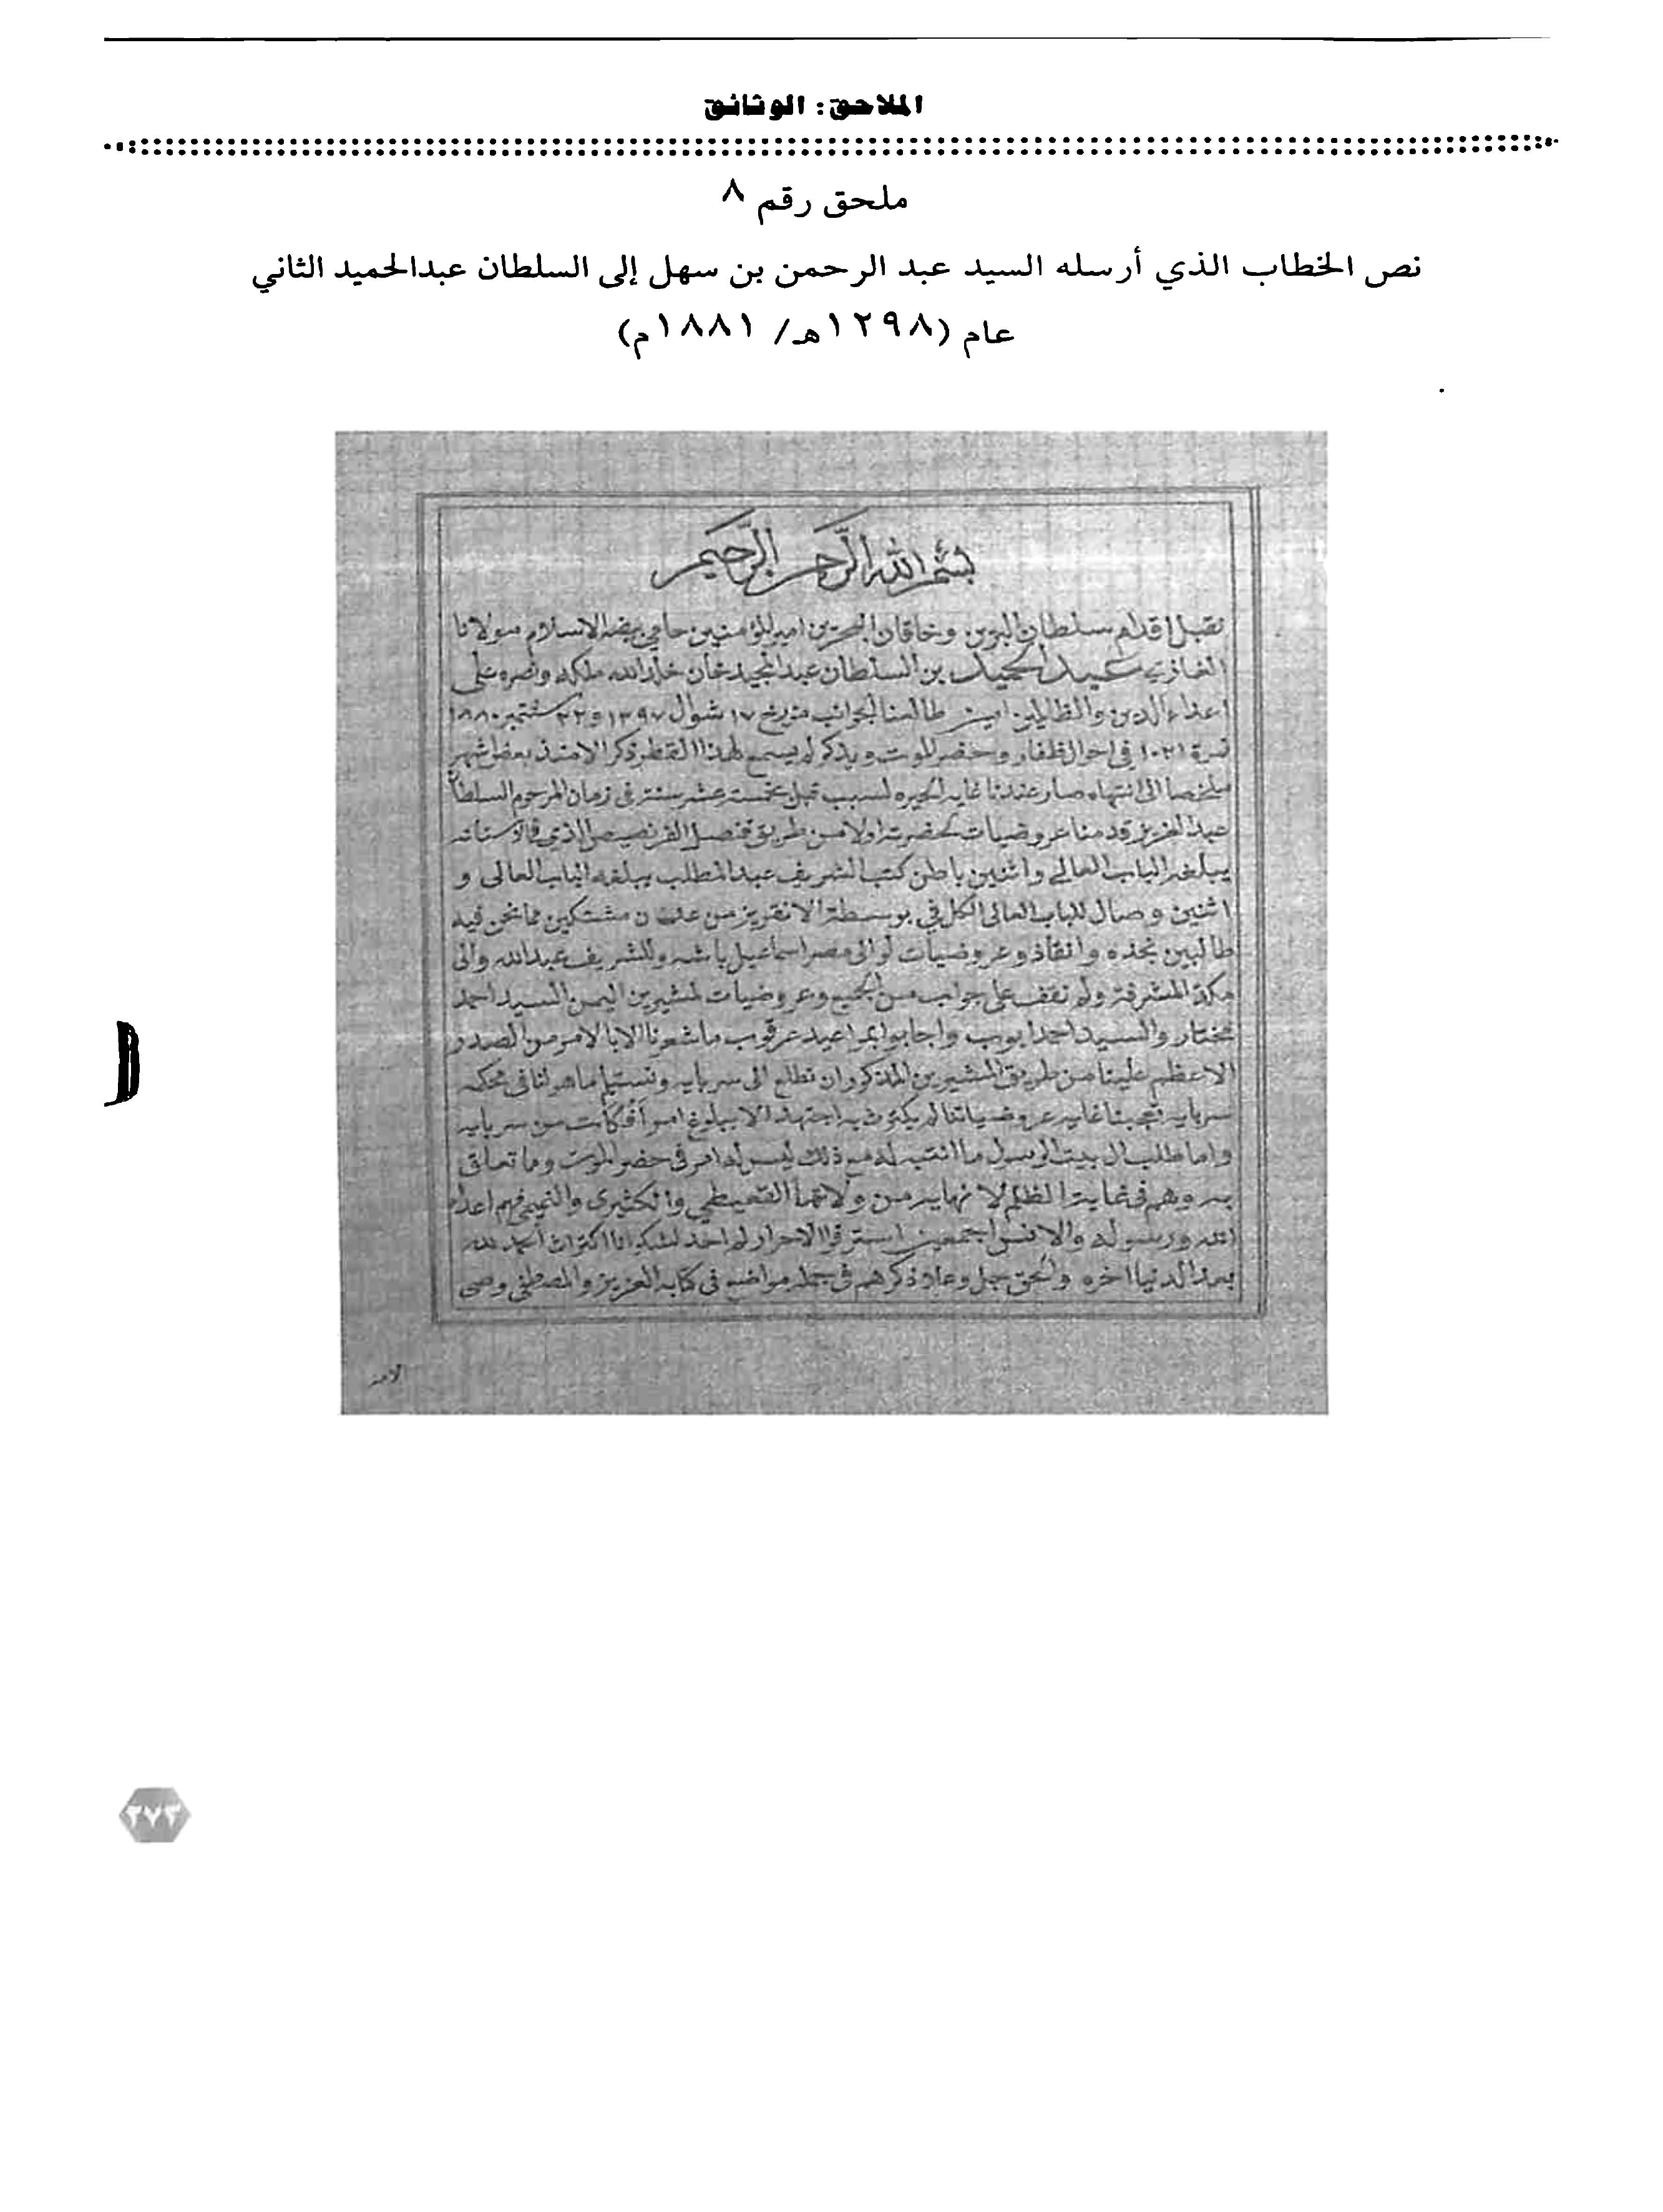 الملاحق: الوثائق
ملحق رقم ٨
نص الخطاب الذي أرسله السيد عبد الرحمن بن سهل إلى السلطان عبدالحميد الثاني
عام (١٢٩٨هـ/ ١٨٨١م)
بسم الله الرحمن الرحيم
نقبل اقدام سلطان البرين وخاقان البحرين امير المؤمنين حامي بيضة الاسلام مولانا
الغازي عبد الحميد بن السلطان عبد المجيد خان خلد الله ملكه ونصره على
اعداء الدين والظالمين امين طالعنا الجوانب مؤرخ ١٧ شوال ١٢٩٧ و ٢٢ سبتمبر ١٨٨٠
نمرة ١٠٢١ في احوال ظفار وحضر الموت ويذكر لم يسمع لهذا القطر ذكر الا منذ بعض اشهر
ملخصا الى انتهاه صار عندنا غاية الحيره لسبب قبل خمسة عشر سنة في زمان المرحوم السلطان
عبد العزيز قدمنا عروضيات لحضرته اولا من طريق قنصل الفرنصيص الذي
يبلغه الباب العالي واثنين باطن كتب الشريف عبد المطلب يبلغه الباب العالي و
اثنين وصال للباب العالي الكل في بوسطة الانقريز من عدن مشتكين مما نحن فيه
طالبين نجده وانقاذ وعروضيات لوالي مصر اسماعيل باشه وللشريف عبدالله والي
مكة المشرفة ولم نقف على جواب من الجميع وعروضيات لمشيرين اليمن السيد احمد
مختار والسيد احمد ايوب واجابوا بمواعيد عرقوب ما شعرنا الا بالامر من الصدر
الاعظم علينا من طريق المشيرين المذكوران نطلع الى سربايه ونستلم ما هو لنا في محكمه
سربايه تعجبنا غايه عروضياتنا لم يكترث به اجتهد الا يبلوغ امر من سربايه
واما طلب ال بيت الرسول ما انتبه له مع ذلك ليس له امر في حضر الموت وما تعلق
به وهم في غاية الظلم لا نهايه من ولاتها القعيطي والكثيري والتميمي فهم اعداء
الله ورسوله والانس اجمعين استرقوا الاحرار لم احد لشكوانا اكترث الحمد لله
بعد الدنيا اخره والحق جل وعلا ذكرهم في جملة مواضع في كتابه العزيز والمصطفى وصى
٢٧٣